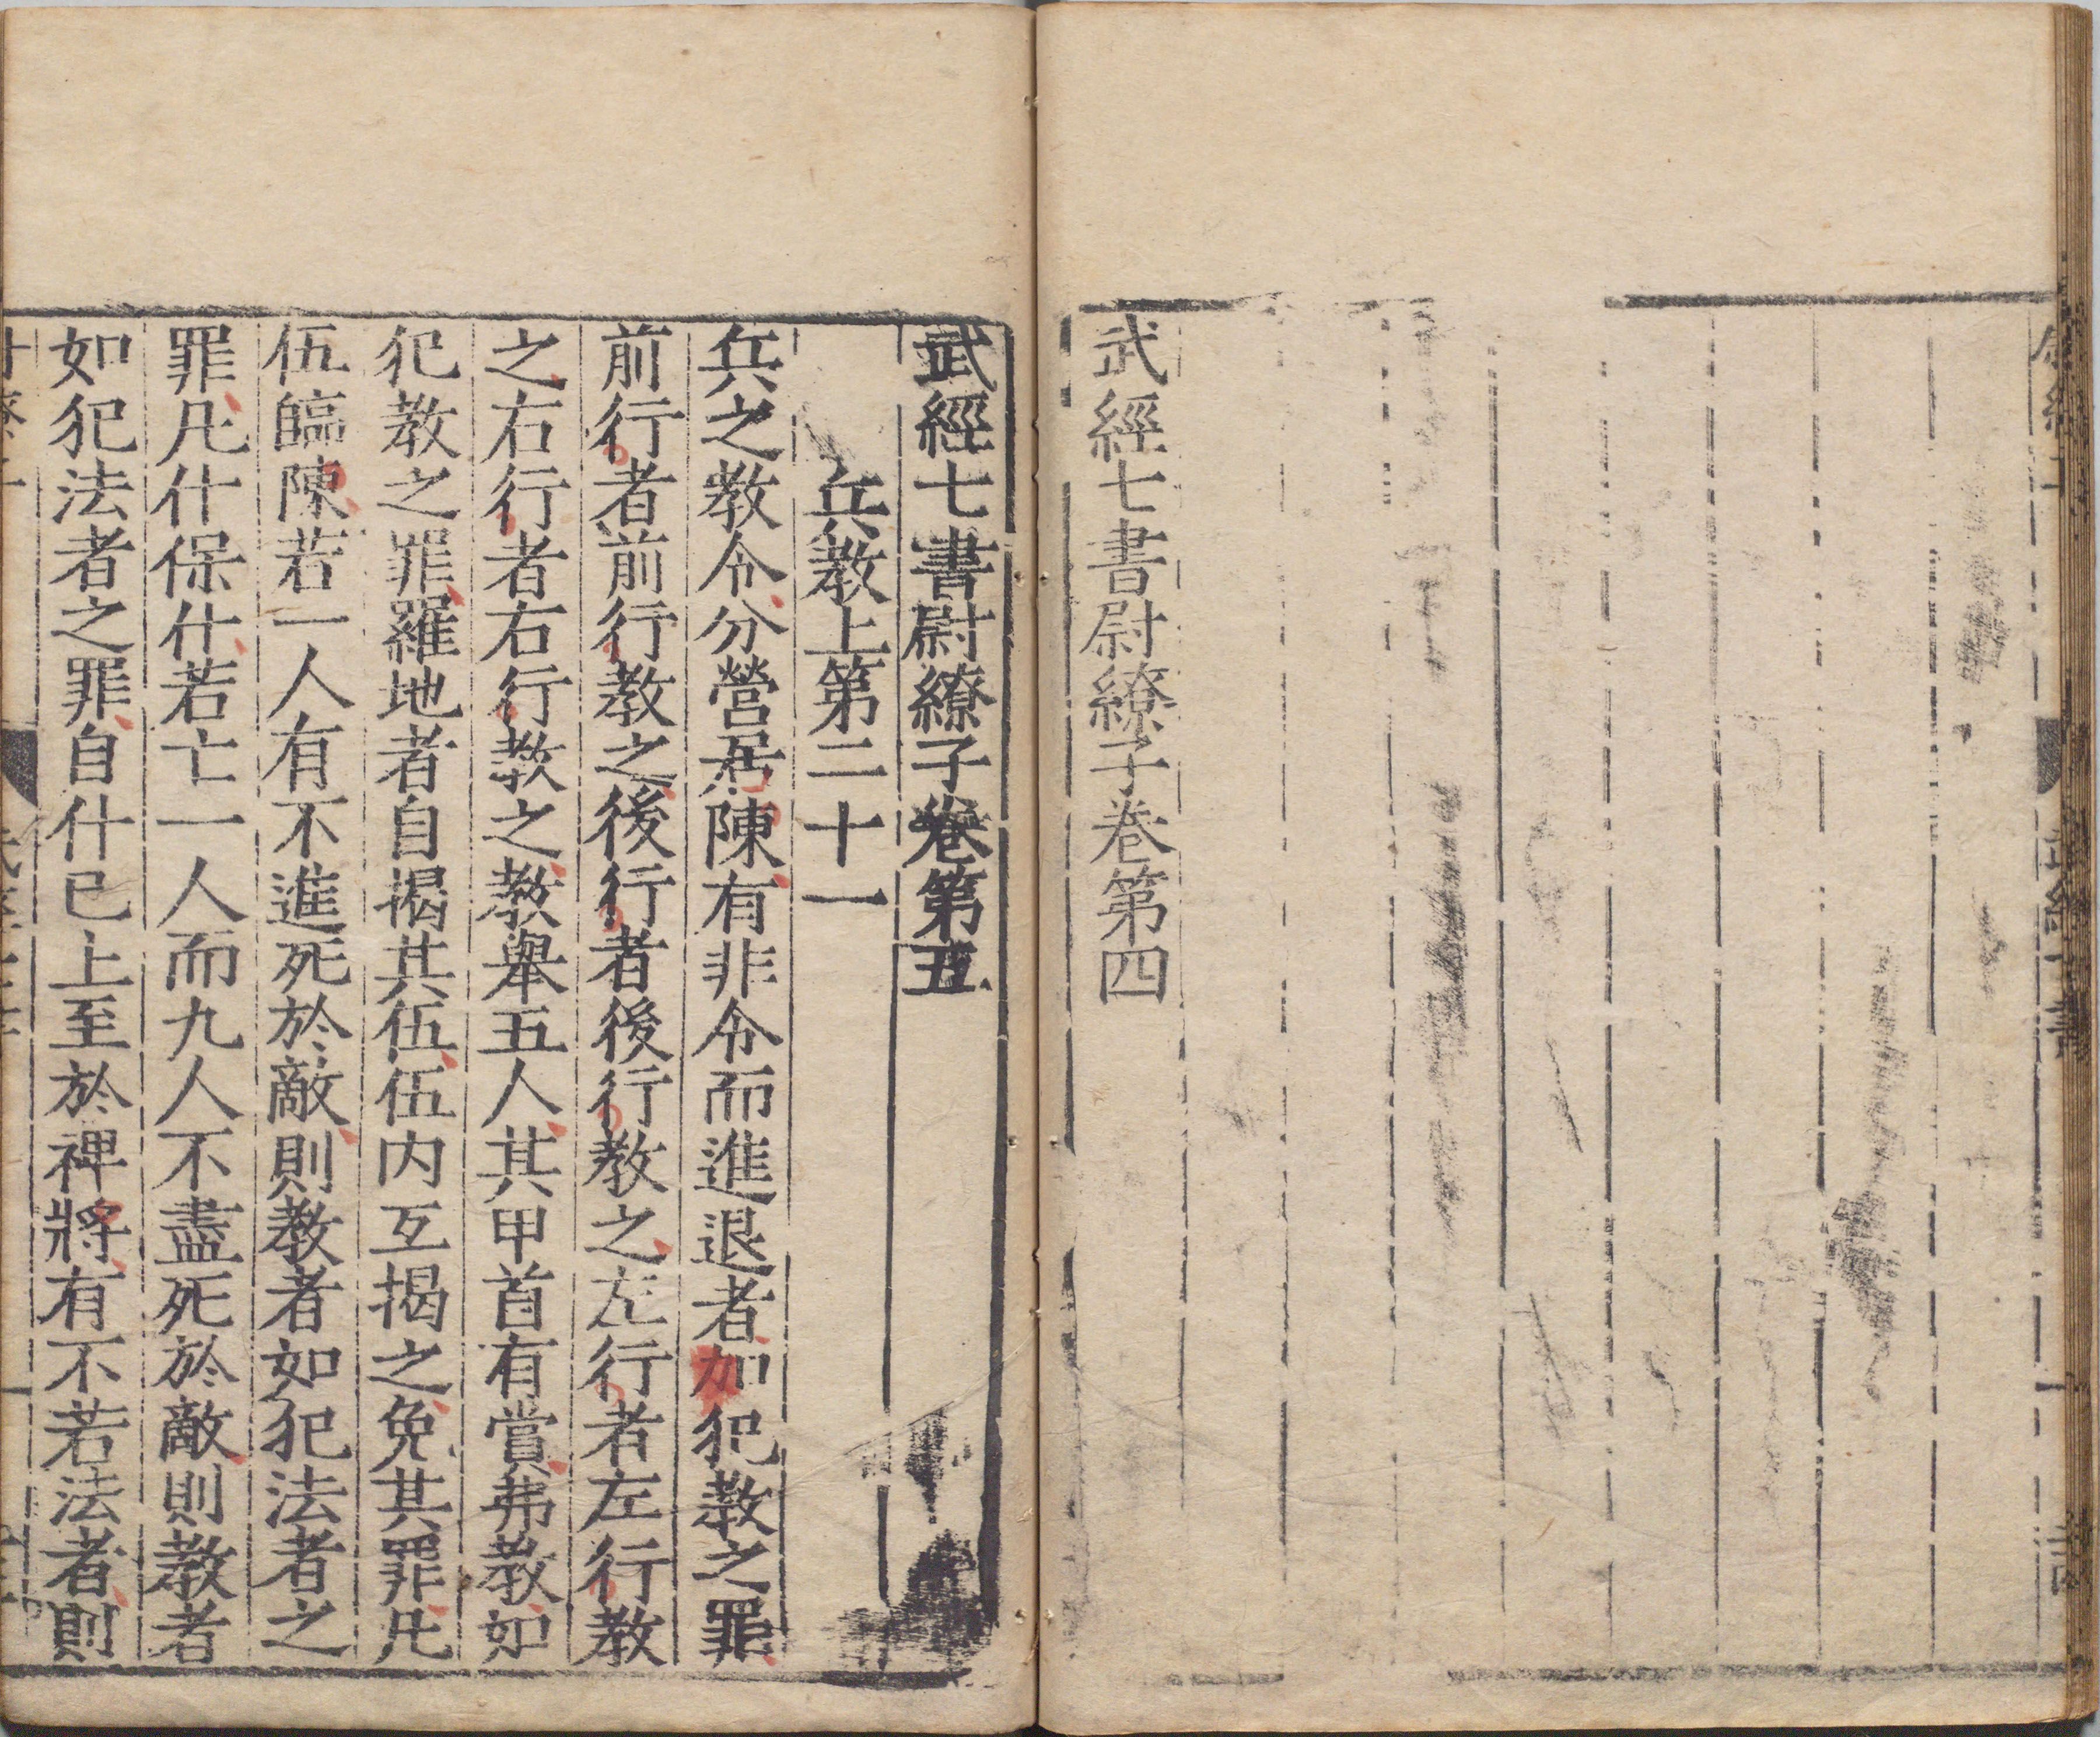 武經七書尉繚子卷第四
武經七書尉繚子卷第五
兵教上第二十一
兵之教令分營居陳有非令而進退者加犯教之罪
前行者前行教之後行者後行教之左行者左行教
之右行者右行教之教舉五人其甲首有賞弗教如
犯教之罪羅地者自揭其伍伍内互揭之免其罪凡
伍臨陳若一人有不進死於敵則教者如犯法者之
罪凡什保什若亡一人而九人不盡死於敵則教者
如犯法者之罪自什已上至於裨將有不若法者則